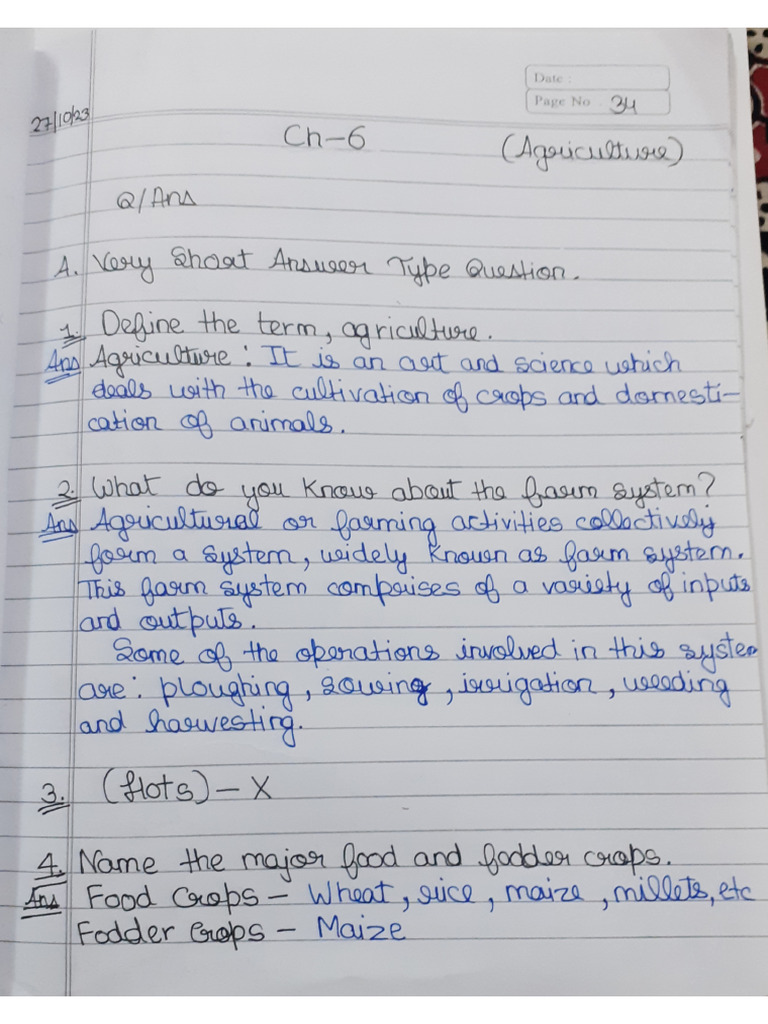 Date :
Page No 34
27/10/23
Ch-6 (Agriculture)
Q/Ans
A. Very Short Answer Type Question.
1. Define the term, agriculture.
Ans Agriculture : It is an art and science which
deals with the cultivation of crops and domesti-
cation of animals.
2. What do you know about the farm system?
Ans Agricultural or farming activities collectively
form a system, widely known as farm system.
This farm system comprises of a variety of inputs
and outputs.
Some of the operations involved in this system
are: ploughing, sowing, irrigation, weeding
and harvesting.
3. (Hots) - X
4. Name the major food and fodder crops.
Ans Food Crops - Wheat, rice, maize, millets, etc
Fodder Crops - Maize